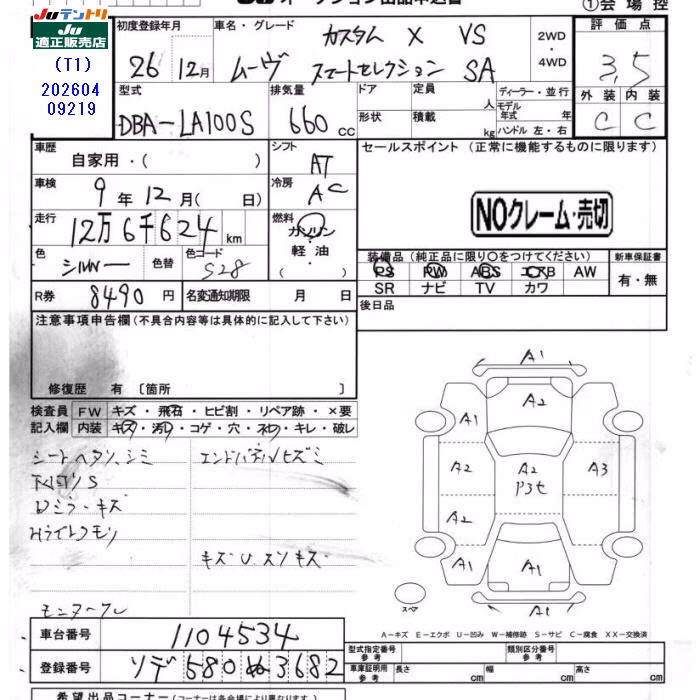 Juテントリ
Ju適正販売店
(T1)
202604
09219
①会場控
初度登録年月
26年 12月
車名・グレード
カスタム X VS
ムーヴ スマートセレクション SA
2WD
・
4WD
評価点
3.5
外装 内装
C C
型式
DBA-LA100S
排気量
660 cc
ドア
形状
定員
人
積載
kg
ディーラー・並行
モデル年式 年
ハンドル 左・右
車歴
自家用・( )
シフト
AT
セールスポイント (正常に機能するものに限ります)
NOクレーム・売切
車検
9年12月( 日)
冷房
AC
走行
12万6千624 km
燃料
ガソリン
・
軽油
( )
色
シルバー
色替
色コード
S28
装備品 (純正品に限り〇をつけてください)
PS PW ABS エアB AW
SR ナビ TV カワ
新車保証書
有・無
R券 8490 円
名変通知期限 月 日
後日品
注意事項申告欄 (不具合内容等は具体的に記入して下さい)
修復歴 有 [箇所 ]
検査員記入欄
FW キズ・飛石・ヒビ割・リペア跡・×要
内装 キズ・汚レ・コゲ・穴・ネジ・キレ・破レ
シートヘタリ、シミ
エンドパネルヒズミ
下回りS
Dミラーキズ
Hライトクモリ
キズU.スリキズ
A1
A2
A1
A2
A2
P3セ
A3
A2
A1
A1
A1
A1
スペア
A-キズ E-エクボ U-凹み W-補修跡 S-サビ C-腐食 XX-交換済
車台番号 1104534
登録番号 ソデ 580 ぬ 3682
型式指定番号 参考
類別区分番号 参考
車庫証明用 参考
長さ cm
幅 cm
高さ cm
希望出品コーナー (コーナーは各会場により異なります)